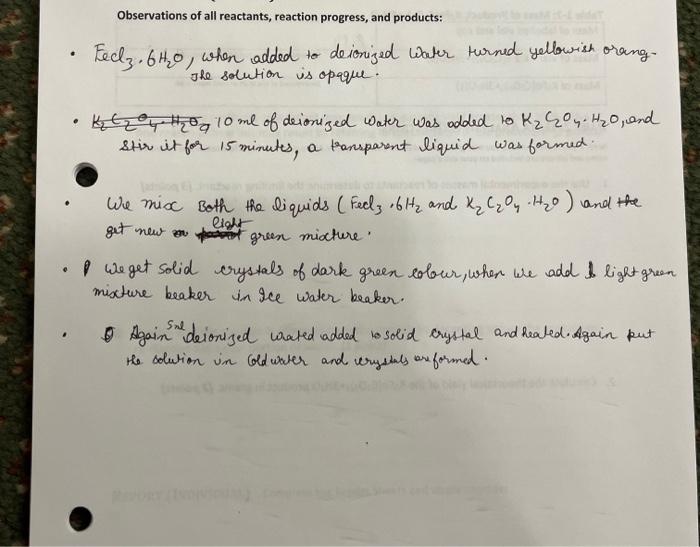 Observations of all reactants, reaction progress, and products:
• Fecl₃.6H₂O, when added to deionized water turned yellowish orang.
The solution is opaque.
• K₂C₂O₄.H₂O, 10 ml of deionized water was added to K₂C₂O₄.H₂O, and
Stir it for 15 minutes, a transparent liquid was formed.
• We mix Both the liquids (Fecl₃.6H₂ and K₂C₂O₄.H₂O) and the
light
get new green mixture.
• We get solid crystals of dark green colour, when we add light green
mixture beaker in Ice water beaker.
• Again 5ml deionized wated added to solid crystal and heated. Again put
the solution in Cold water and crystals are formed.